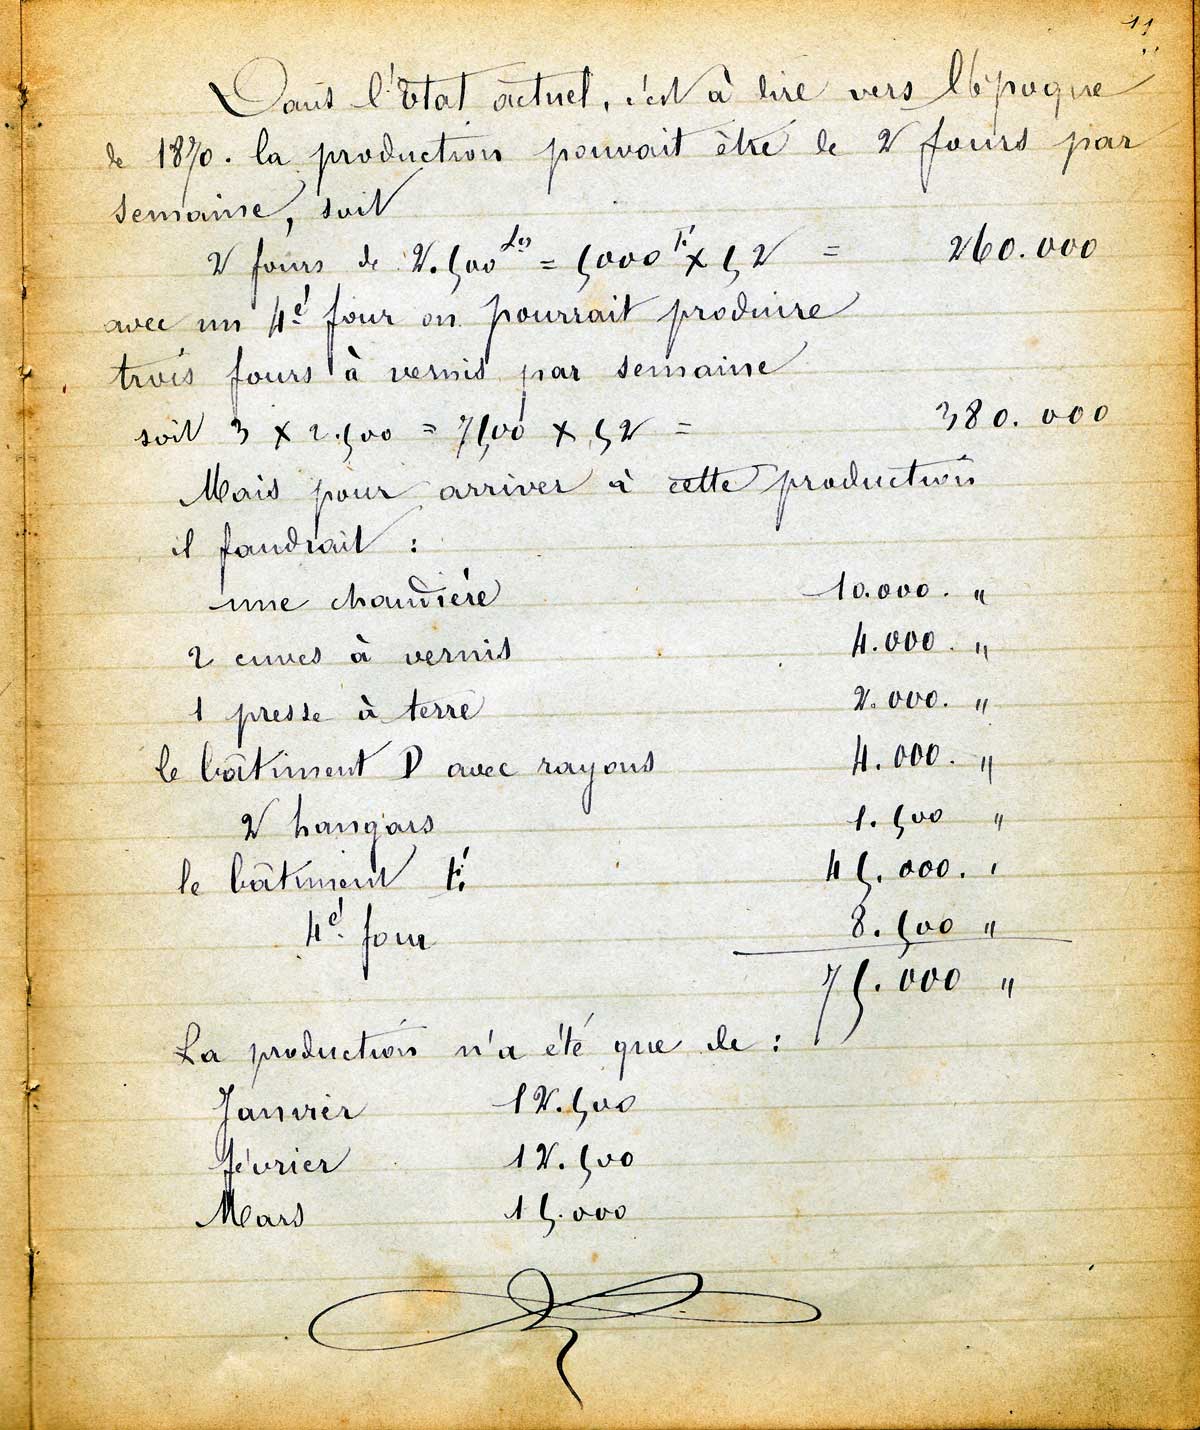 11
Dans l'Etat actuel, c'est à dire vers l'époque
de 1870. la production pouvait être de 2 fours par
semaine, soit
2 fours de 2.500 = 5000 × 52 = 260.000
avec un 4e four on pourrait produire
trois fours à vernis par semaine
soit 3 × 2.500 = 7500 × 52 = 380.000
Mais pour arriver à cette production
il faudrait :
une chaudière 10.000. "
2 cuves à vernis 4.000. "
1 presse à terre 2.000. "
le bâtiment D avec rayons 4.000. "
2 hangars 1.500 "
le bâtiment E. 45.000. "
4e four 8.500 "
75.000 "
La production n'a été que de :
Janvier 12.500
février 12.500
Mars 15.000